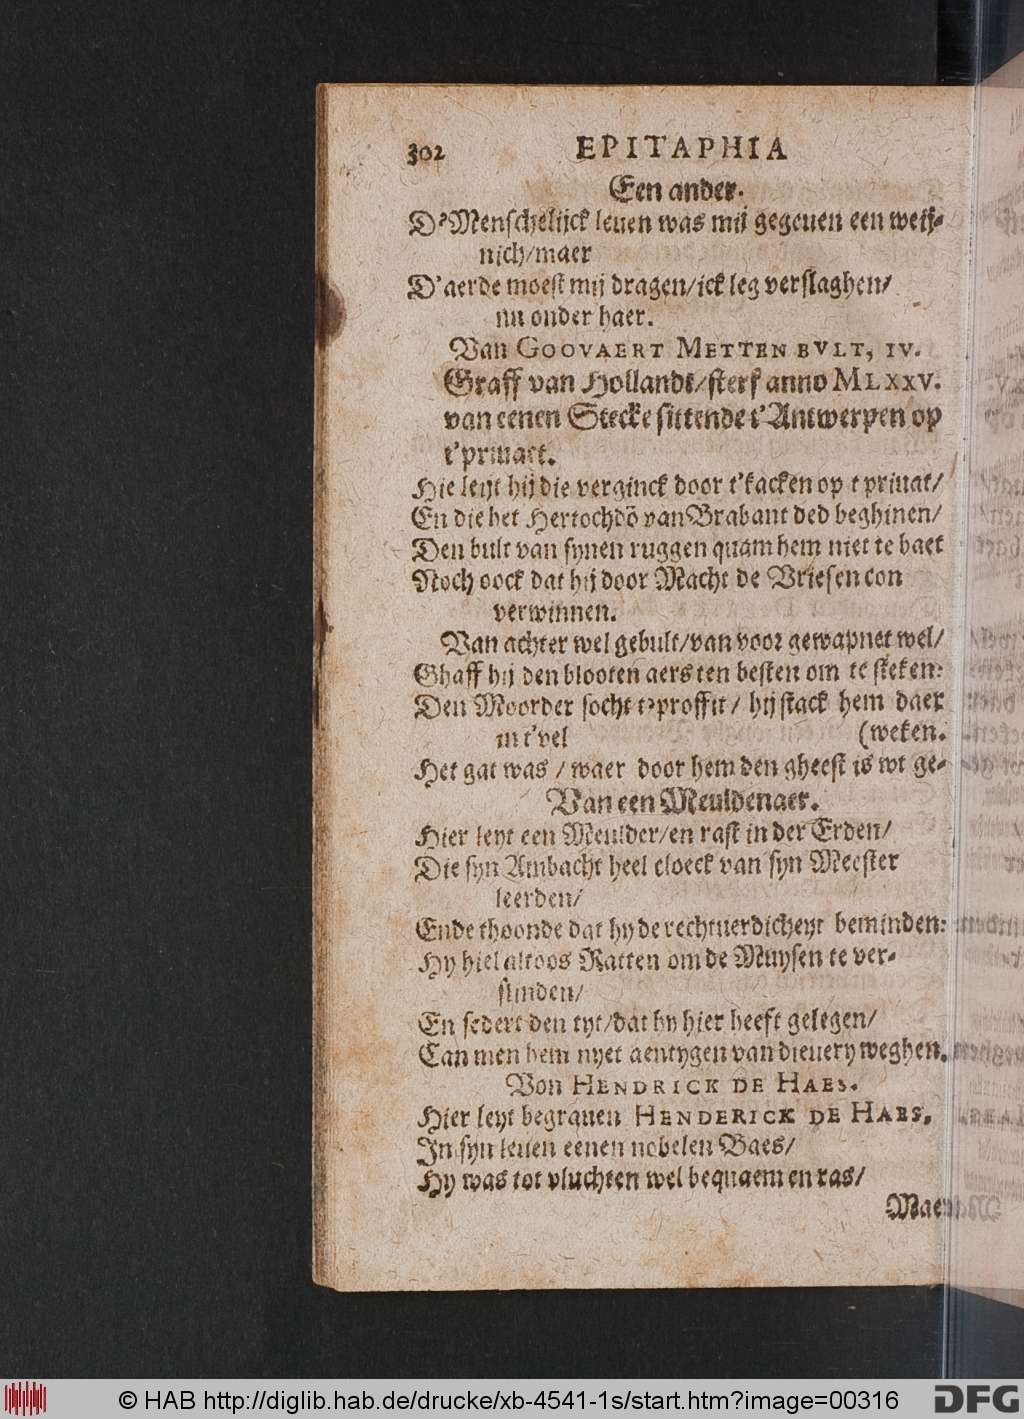 302 EPITAPHIA
Een ander.
D'Menschelijck leuen was mij gegeuen een weij-
nich/maer
D'aerde moest mij dragen/ick leg verslaghen/
nu onder haer.
Van GOOVAERT METTEN BVLT, IV.
Graff van Hollandt/sterf anno MLXXV.
van eenen Stecke sittende t'Antwerpen op
t'priuaet.
Hie leyt hij die verginck door t'kacken op t priuat/
En die het Hertochdõ van Brabant ded beghinen/
Den bult van synen ruggen quam hem niet te baet
Noch oock dat hij door Macht de Vriesen con
verwinnen.
Van achter wel gebult/van voor gewapnet wel/
Ghaff hij den blooten aers ten besten om te steken:
Den Moorder socht t'proffit / hij stack hem daer
in t'vel (weken.
Het gat was / waer door hem den gheest is wt ge-
Van een Meuldenaer.
Hier leyt een Meulder/en rast in der Erden/
Die syn Ambacht heel cloeck van syn Meester
leerden/
Ende thoonde dat hy de rechtuerdicheyt beminden:
Hy hiel altoos Ratten om de Muysen te ver-
slinden/
En sedert den tyt/dat hy hier heeft gelegen/
Can men hem nyet aentygen van dieuery weghen.
Von HENDRICK DE HAES.
Hier leyt begrauen HENDERICK DE HAES,
In syn leuen eenen nobelen Baes/
Hy was tot vluchten wel bequaem en ras/
Maer
© HAB http://diglib.hab.de/drucke/xb-4541-1s/start.htm?image=00316
DFG